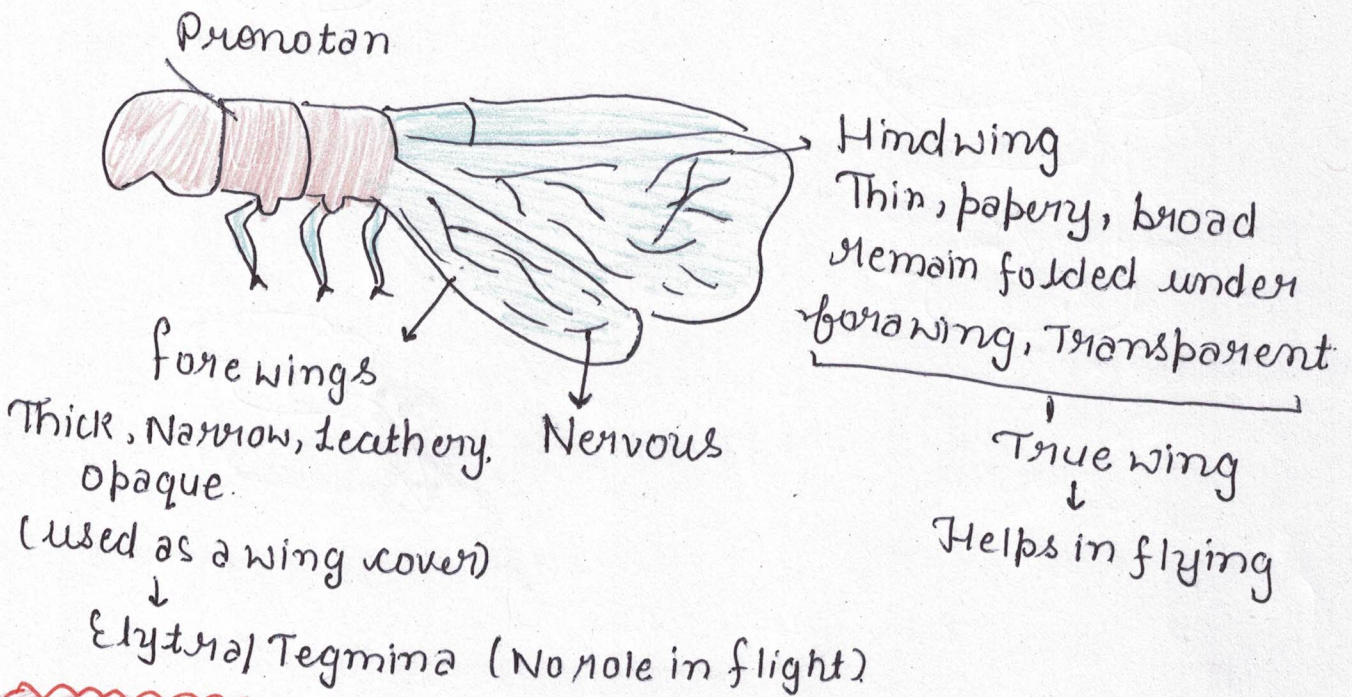 Pronotan
Hindwing
Thin, papery, broad
remain folded under
forawing, Transparent
True wing
↓
Helps in flying
forewings
Thick, Narrow, Leathery,
opaque.
(used as a wing cover)
↓
Elytral Tegmina (No role in flight)
Nervous